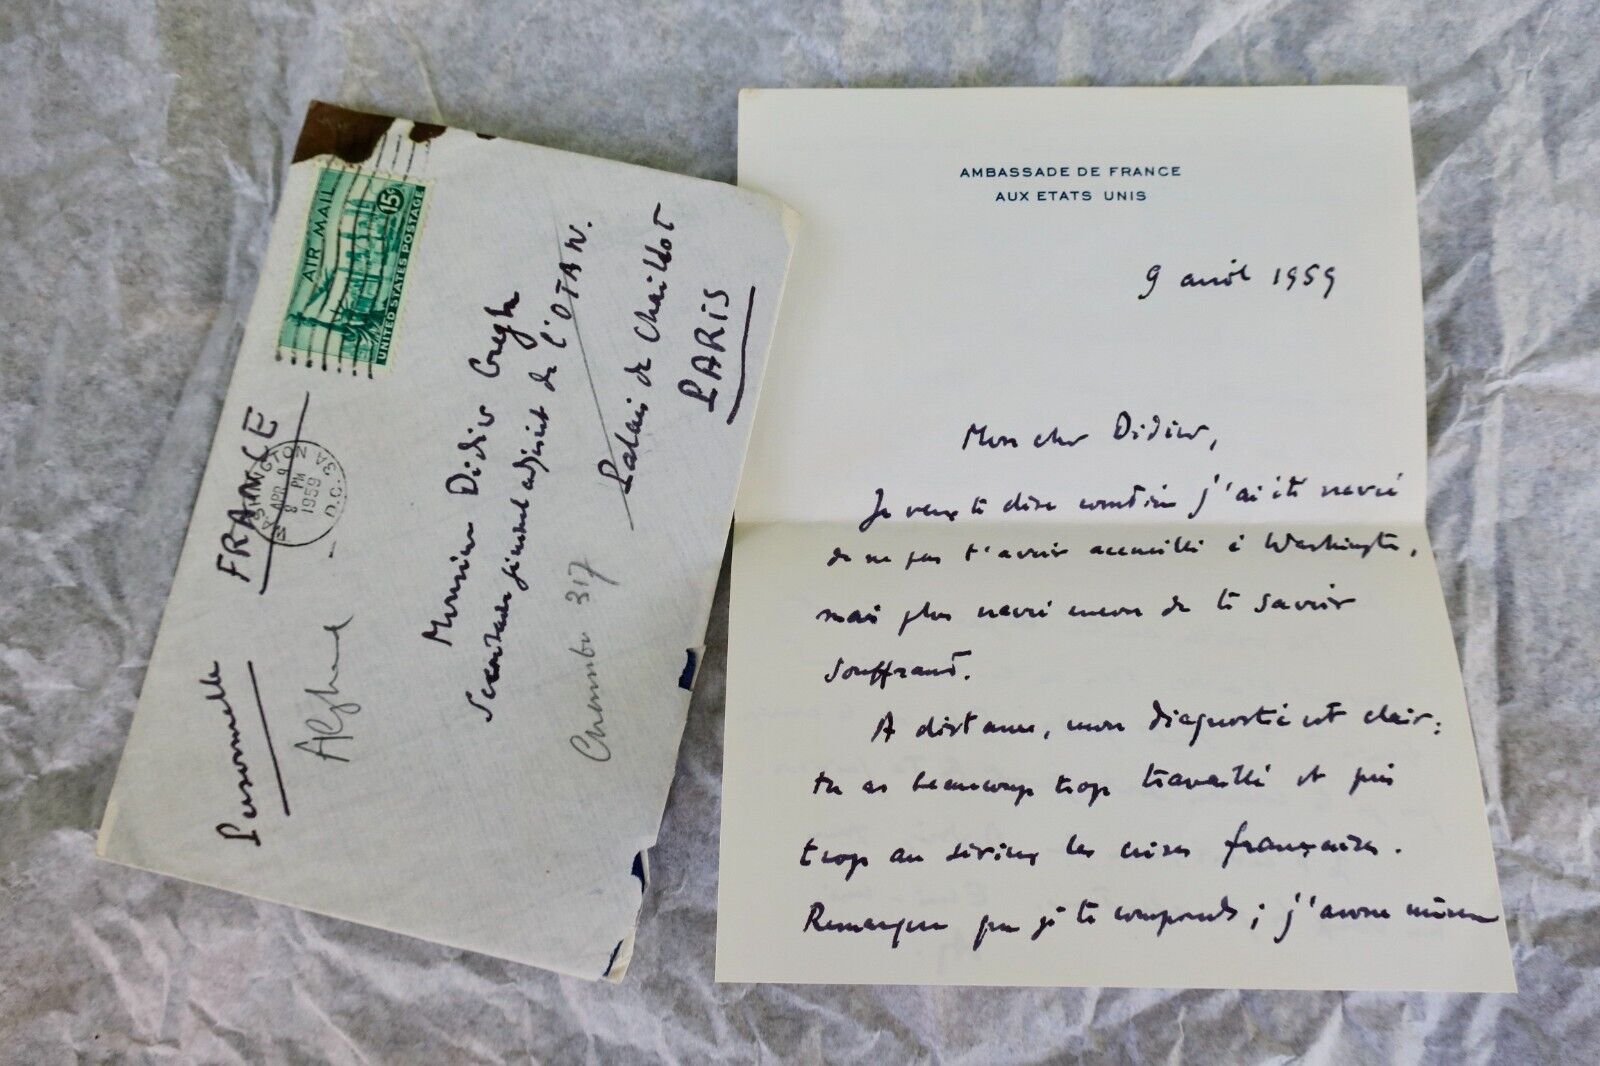 AIR MAIL
15¢
UNITED STATES POSTAGE
WASHINGTON
APR 9
8 PM
1959
D.C. 3A
FRANCE
Personnelle
Monsieur Didier Gregh
Secrétaire général adjoint de l'OTAN.
Palais de Chaillot
PARIS
Chambre 317
AMBASSADE DE FRANCE
AUX ETATS UNIS
9 avril 1959
Mon cher Didier,
Je veux te dire combien j'ai été navré
de ne pas t'avoir accueilli à Washington,
mais plus navré encore de te savoir
souffrant.
A distance, mon diagnostic est clair :
tu as beaucoup trop travaillé et pris
trop au sérieux les crises françaises.
Remarque que je te comprends ; j'avoue même